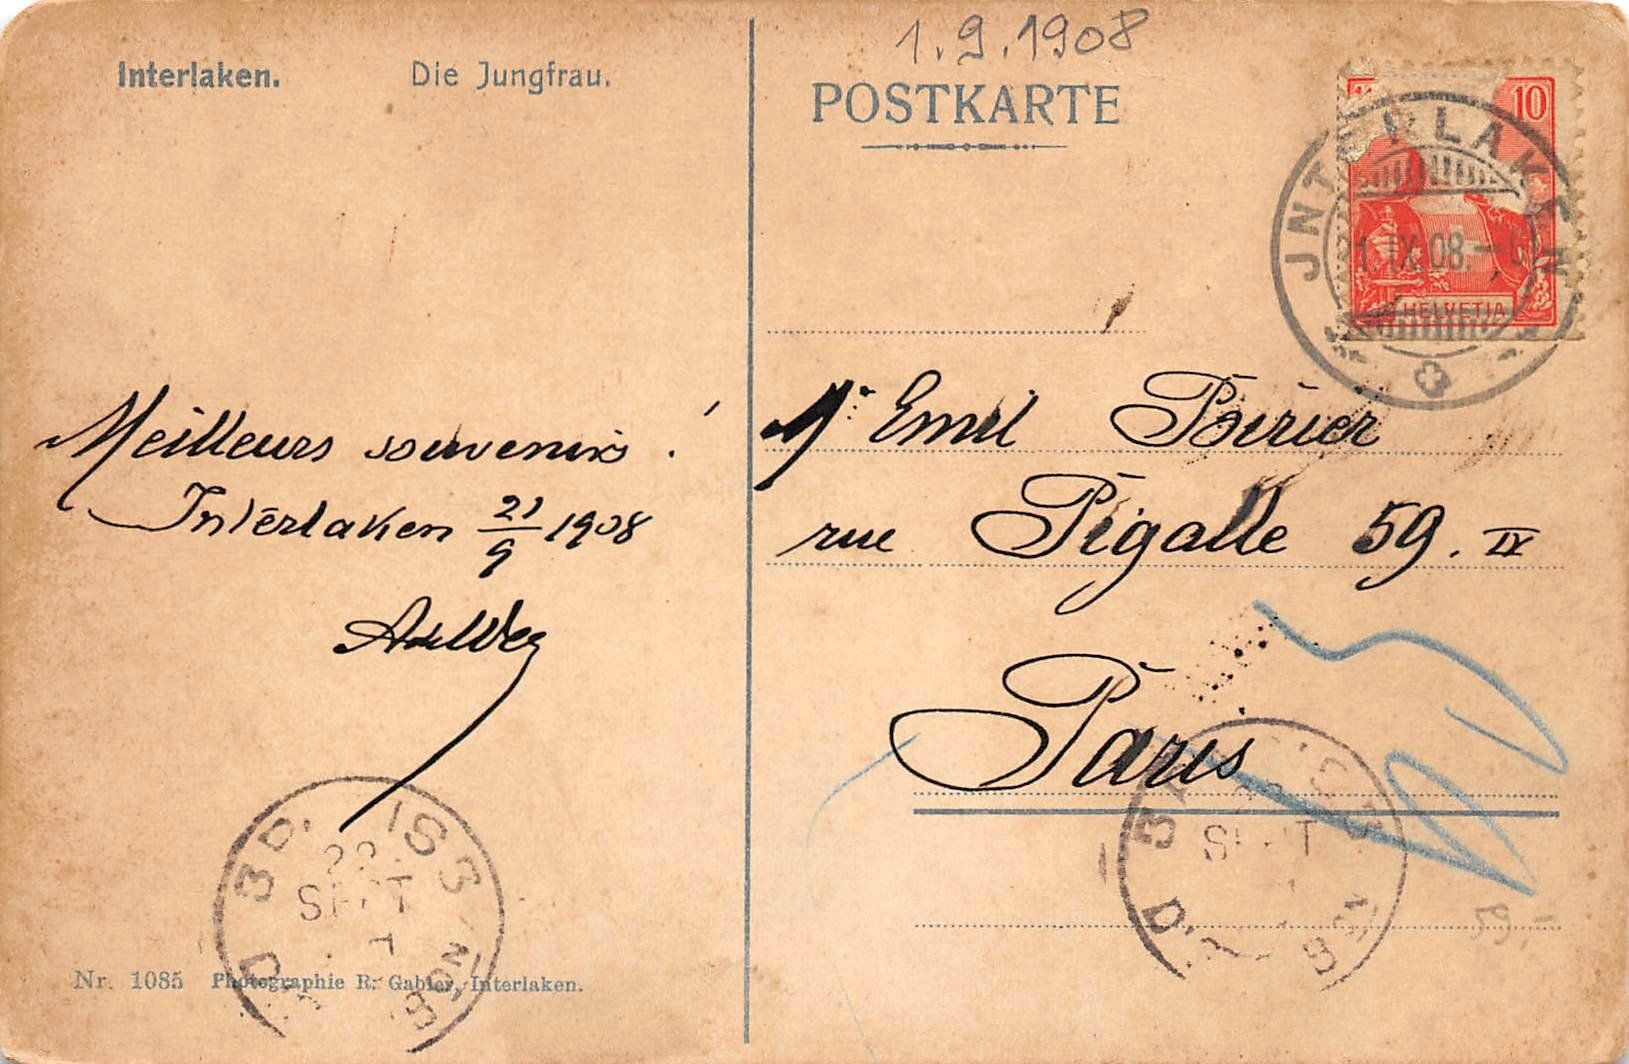 1.9.1908
Interlaken. Die Jungfrau.
POSTKARTE
10
JNTERLAKEN
1.IX.08.
HELVETIA
Meilleurs souvenirs !
Interlaken 21/9 1908
Mr Emil Poirier
rue Pigalle 59. IX
Paris
22
SEPT
SEPT
59.
Nr. 1085 Photographie R. Gabler, Interlaken.